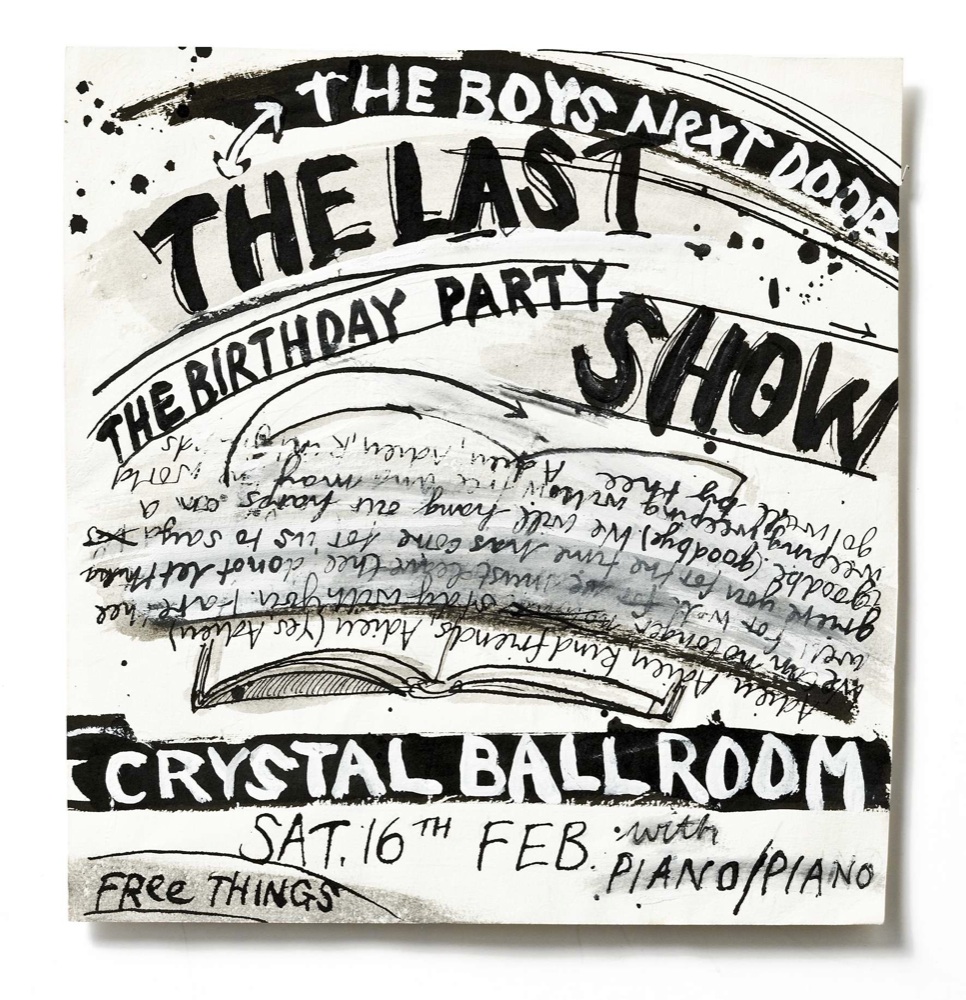 THE BOYS NEXT DOOR
THE LAST
THE BIRTHDAY PARTY
SHOW
Adieu Adieu kind friends Adieu (Yes Adieu)
we can no longer stay with you.
well for we must leave thee do not let
grieve you for the time has come for us to say a
goodbye (goodbye) We will hang our harps on a
weeping weeping willow tree and may world
go well by thee Adieu, Adieu, kind
CRYSTAL BALLROOM
SAT. 16TH FEB. with
PIANO/PIANO
FREE THINGS